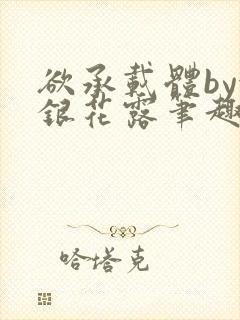 欲承載體by
銀花露筆趣
哈塔克